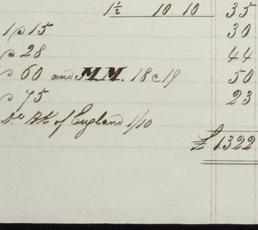 1½ 10.10 35
1 @ 15 30
@ 28 44
@ 60 and M.M. 18 @ 19 50
@ 75 23
Bk of England 1/10
£ 1322